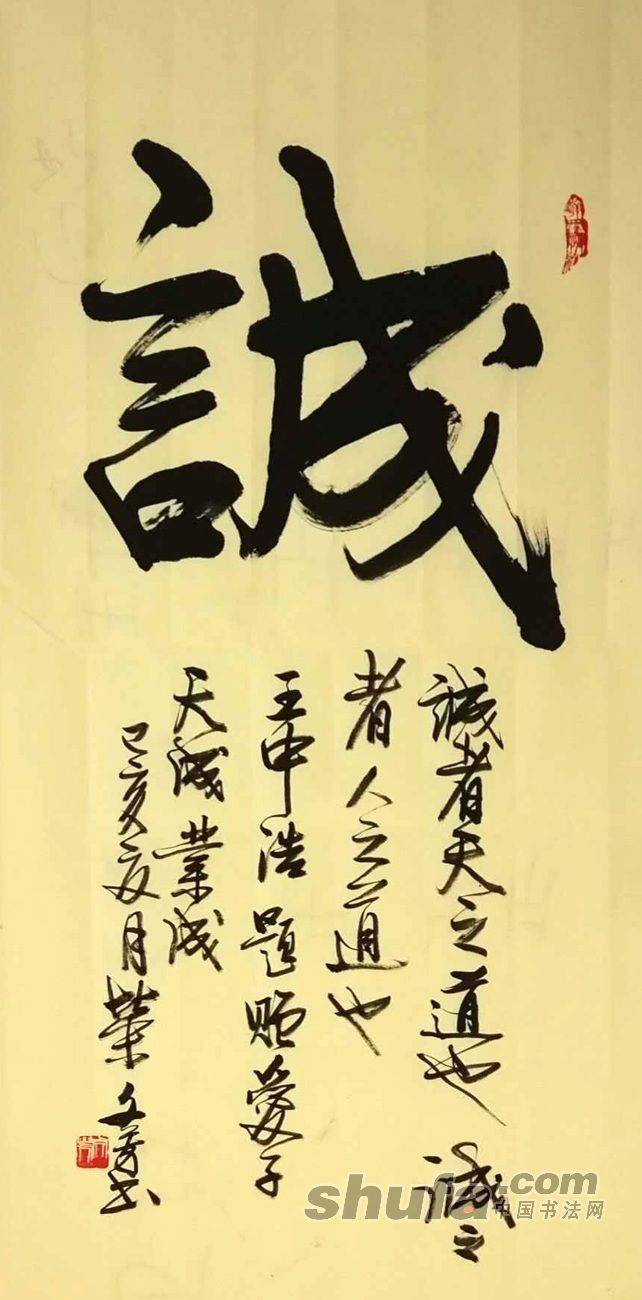 誠
誠者天之道也 誠之
者人之道也
王申浩題贈愛子
天誠業誠
己亥夏月榮文芳書
shufa.com
中国书法网